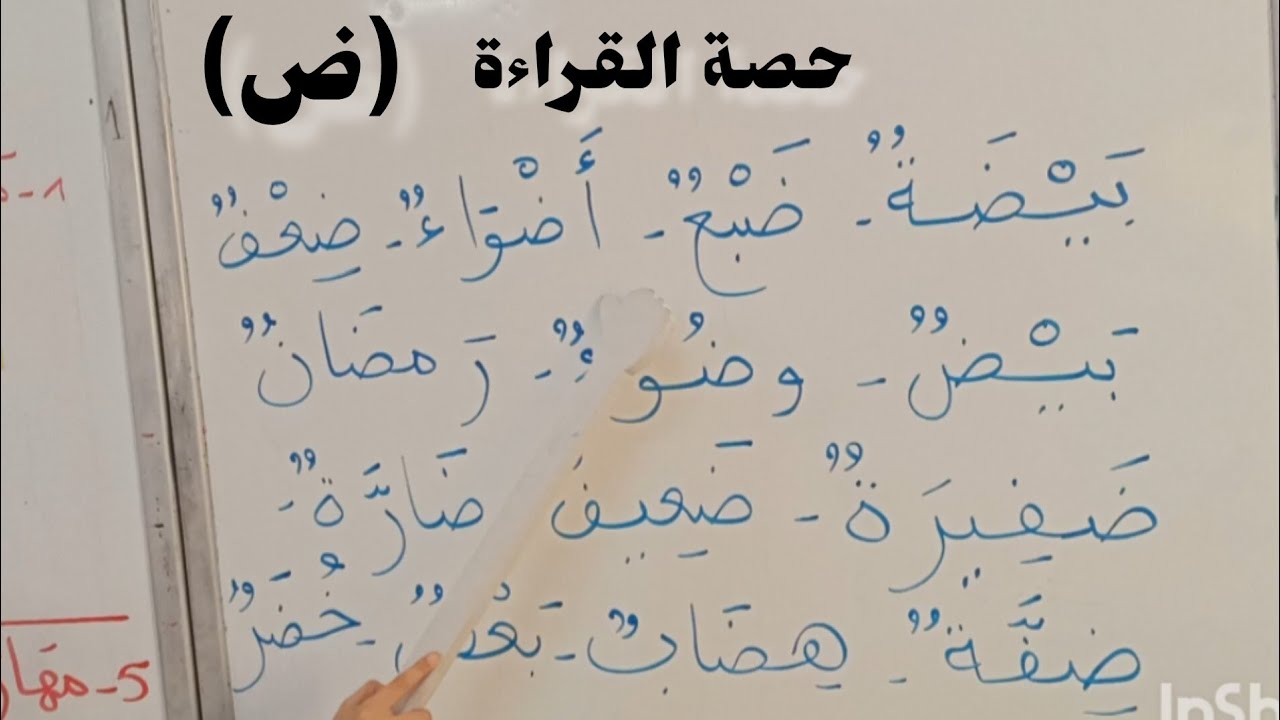 حصة القراءة (ض)
بَيْضَةٌ - ضَبْعٌ - أَضْوَاءٌ - ضِعْفٌ
بَيْضٌ - وضُوءٌ - رَمضَانٌ
ضَفِيرَةٌ - ضَعِيفَ ضَارَّةٌ -
ضِفَّةٌ - هِضَابٌ - بَعْضٌ - خُضَرٌ
1
5 - مهَار
InSh